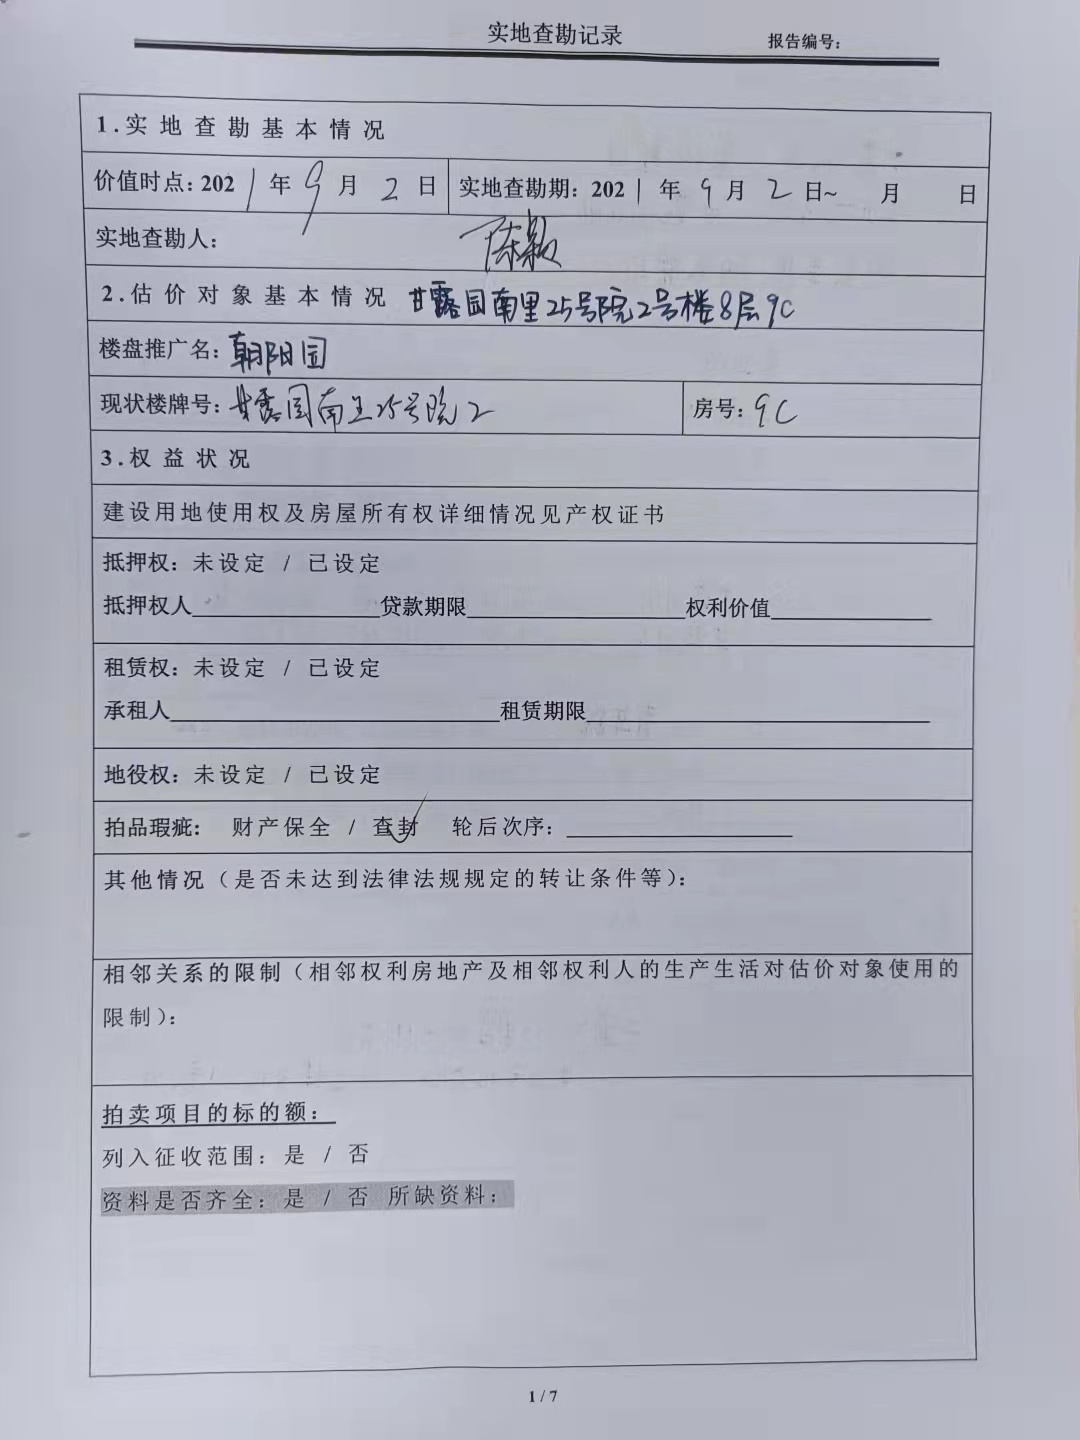 实地查勘记录
报告编号：
1.实地查勘基本情况
价值时点：2021年9月2日 实地查勘期：2021年9月2日~ 月 日
实地查勘人： 陈颖
2.估价对象基本情况 甘露园南里25号院2号楼8层9C
楼盘推广名：朝阳园
现状楼牌号：甘露园南里25号院2 房号：9C
3.权益状况
建设用地使用权及房屋所有权详细情况见产权证书
抵押权：未设定 / 已设定
抵押权人________贷款期限________权利价值________
租赁权：未设定 / 已设定
承租人________租赁期限________
地役权：未设定 / 已设定
拍品瑕疵： 财产保全 / 查封✓ 轮后次序：________
其他情况（是否未达到法律法规规定的转让条件等）：
相邻关系的限制（相邻权利房地产及相邻权利人的生产生活对估价对象使用的
限制）：
拍卖项目的标的额：
列入征收范围：是 / 否
资料是否齐全：是 / 否 所缺资料：
1 / 7